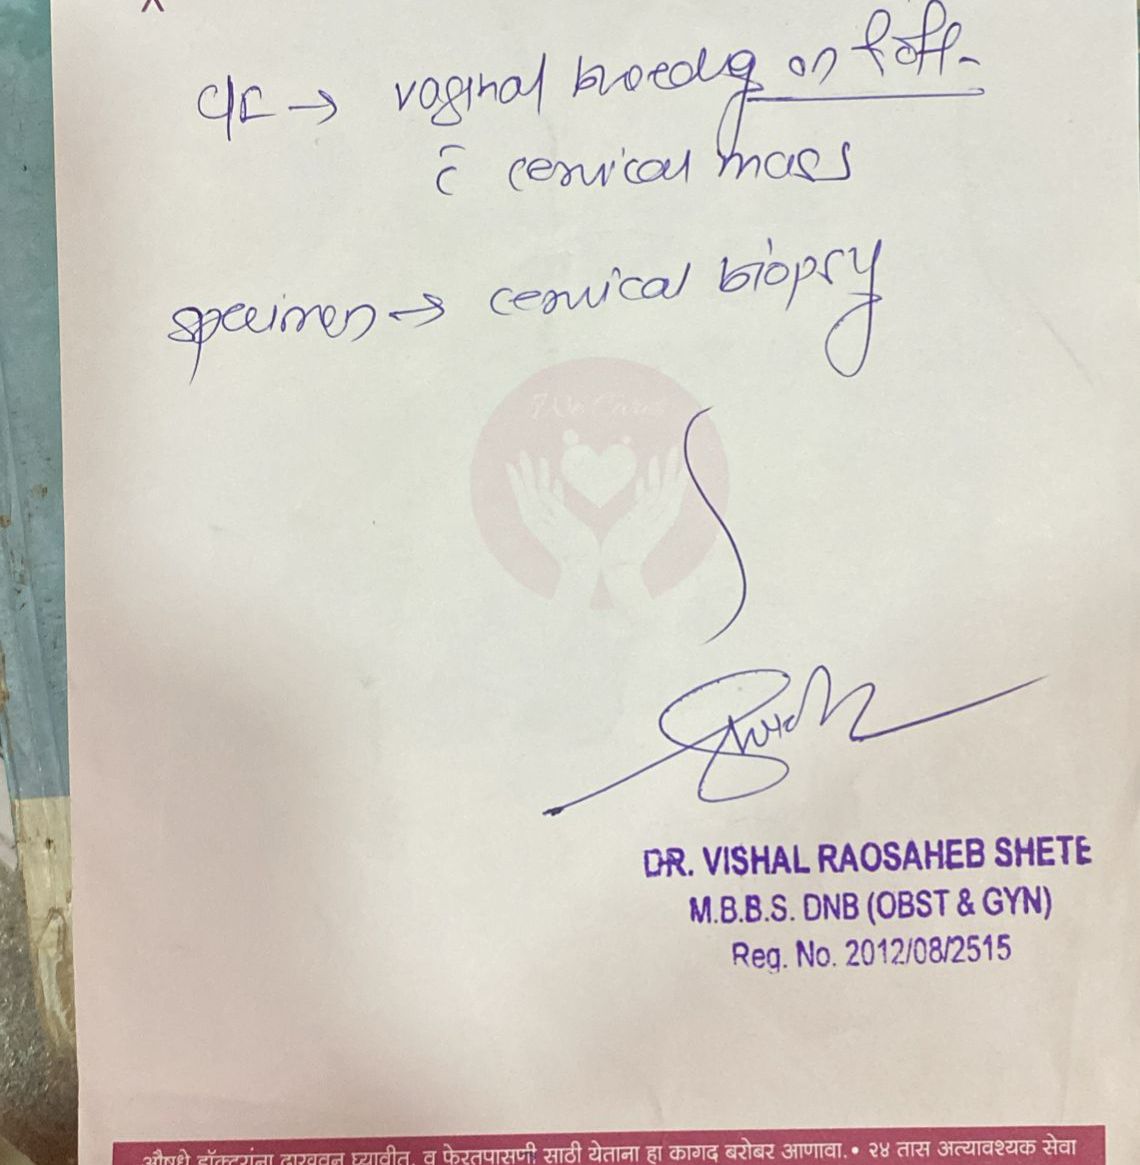 c/c → vaginal bleeding on & off.
c̄ cervical mass
specimen → cervical biopsy
We Care
DR. VISHAL RAOSAHEB SHETE
M.B.B.S. DNB (OBST & GYN)
Reg. No. 2012/08/2515
औषधे डॉक्टरांना दाखवून घ्यावीत. व फेरतपासणी साठी येताना हा कागद बरोबर आणावा. • २४ तास अत्यावश्यक सेवा